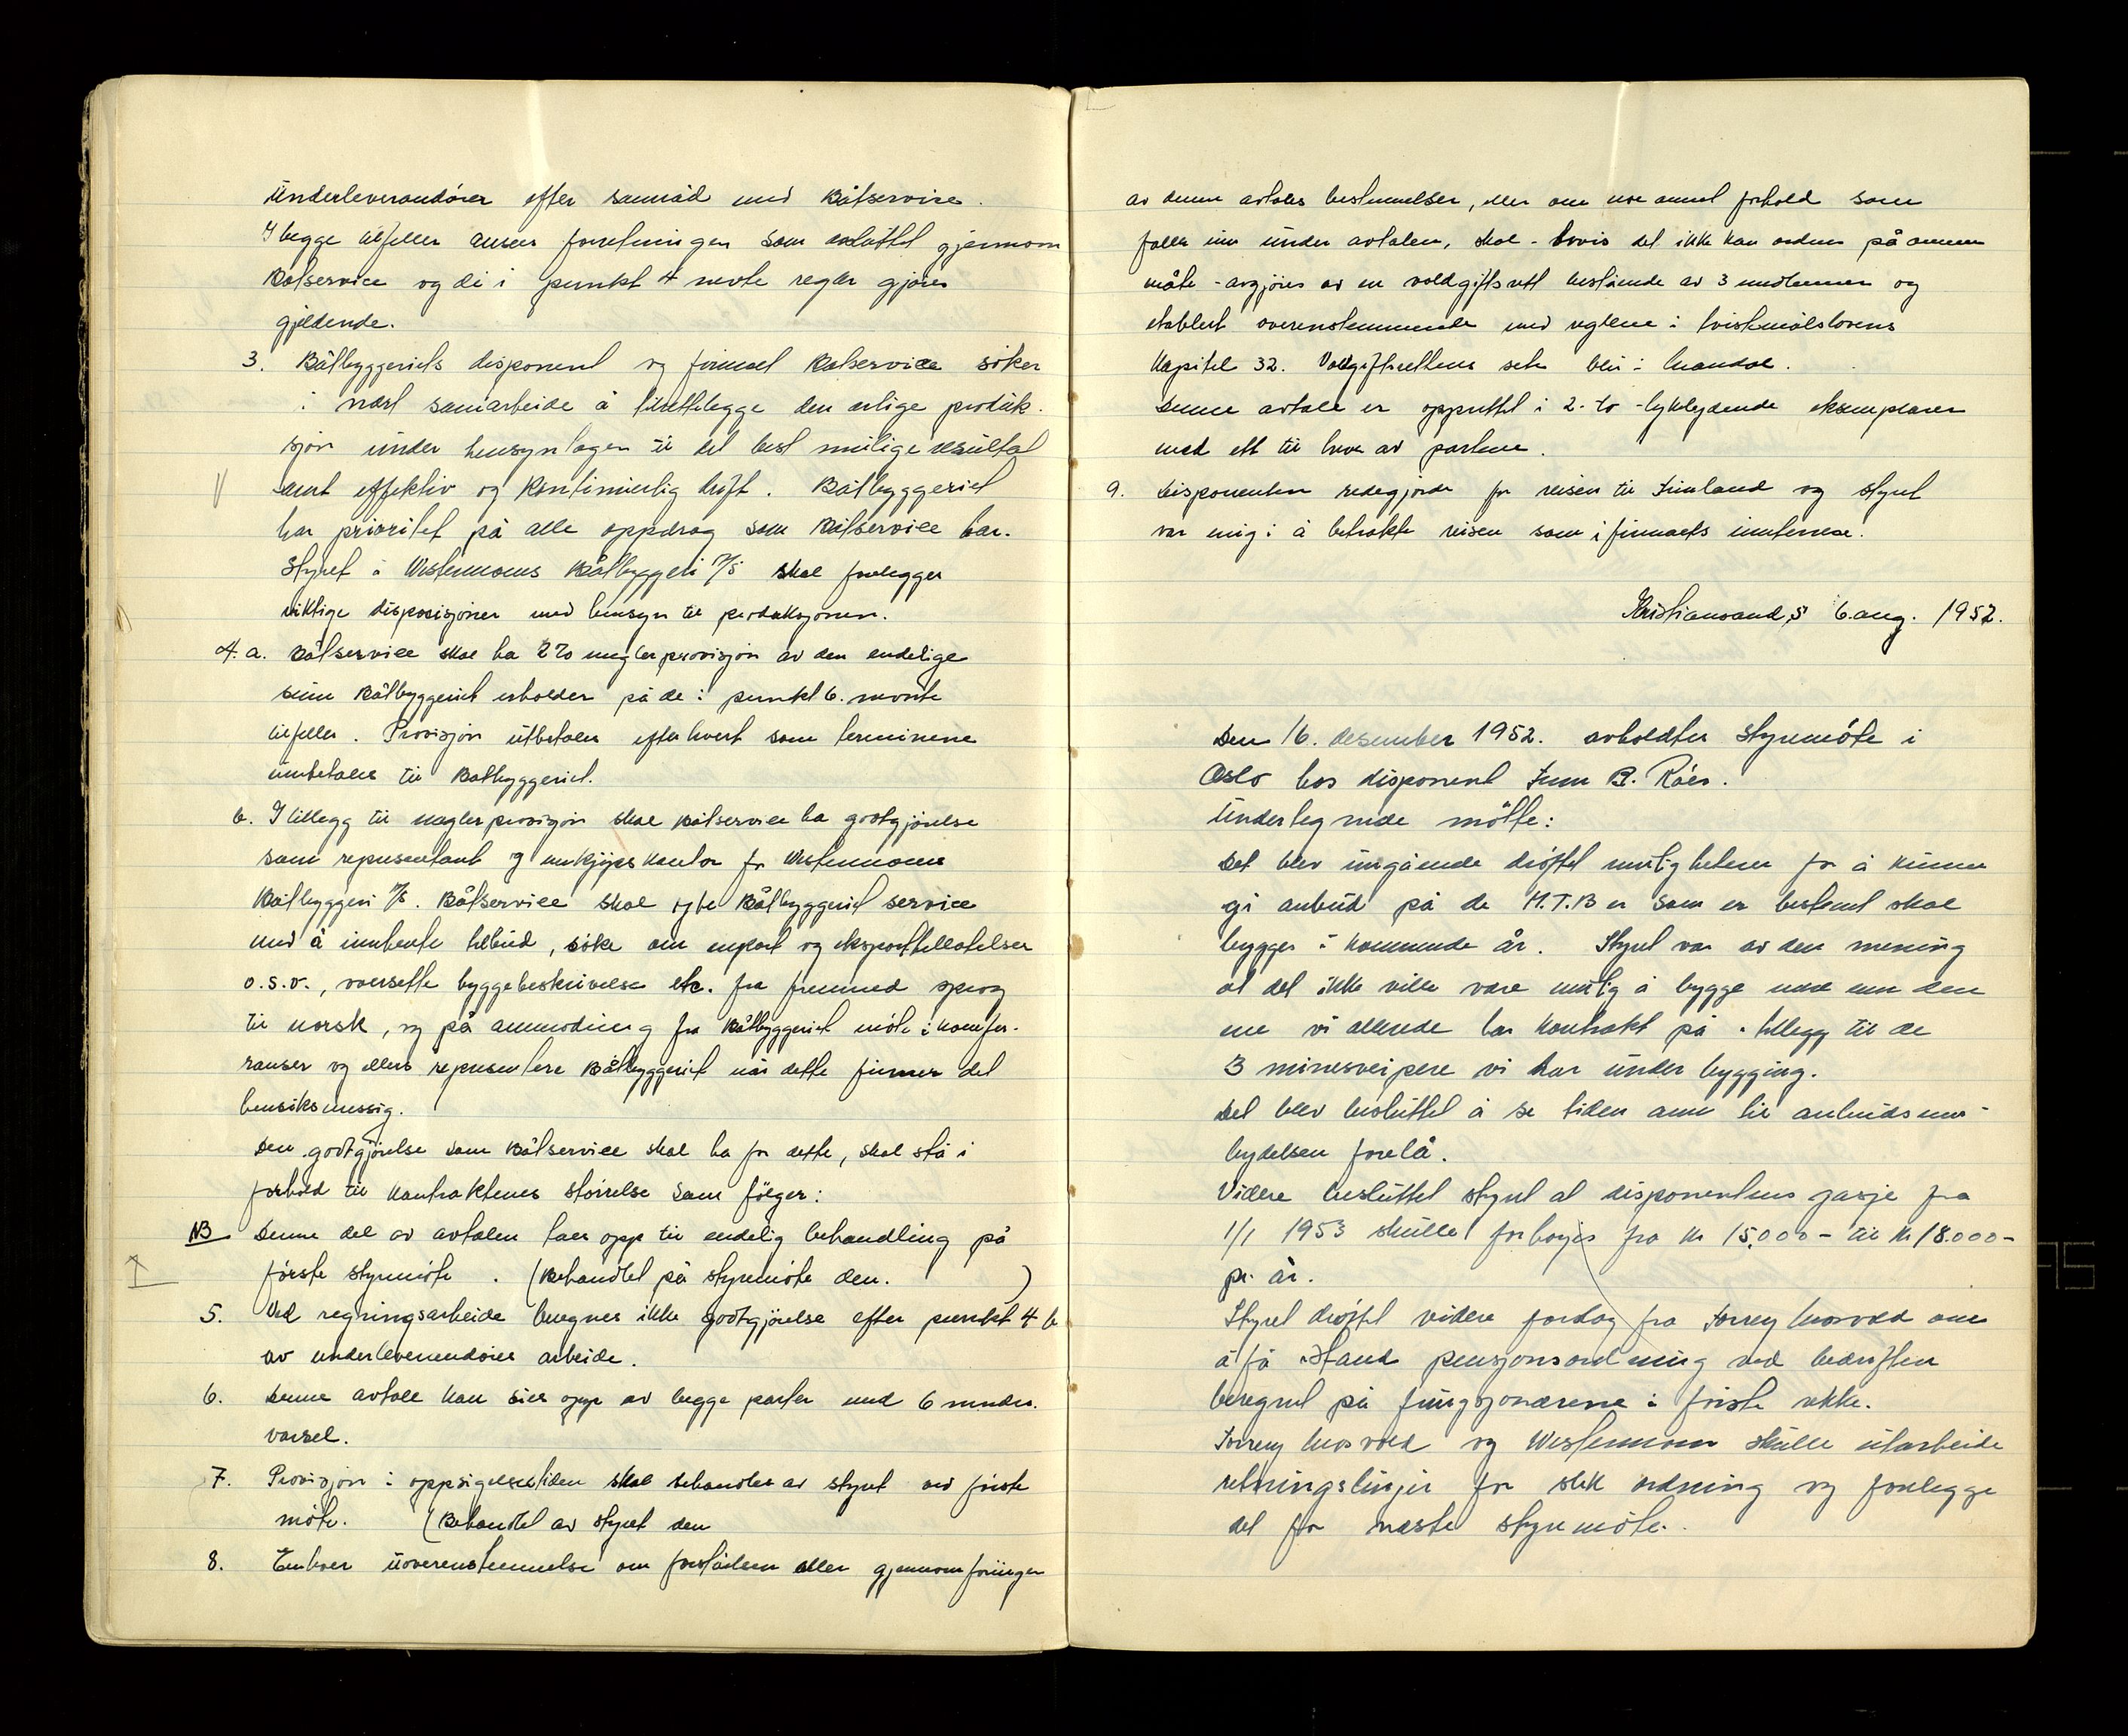 Underleverandører efter samråd med Båtservice.
I begge tilfeller ansees forretningen som avsluttet gjennom
Båtservice og de i punkt 4 nevte regler gjøres
gjeldende.
3. Båtbyggeriets disponent og firmaet Båtservice søker
i nært samarbeide å tilrettelegge den årlige produk-
sjon under hensyntagen til det best mulige resultat
samt effektiv og kontinuerlig drift. Båtbyggeriet
har prioritet på alle oppdrag som Båtservice har.
Styret i Westermoens Båtbyggeri A/S skal forelegges
viktige disposisjoner med hensyn til produksjonen.
4. a. Båtservice skal ha 2% meglerprovisjon av den endelige
sum Båtbyggeriet erholder på de i punkt 6. nevnte
tilfeller. Provisjon utbetales efterhvert som terminene
innbetales til Båtbyggeriet.
b. I tillegg til meglerprovisjon skal Båtservice ha godtgjørelse
som representant og innkjøpskontor for Westermoens
Båtbyggeri A/S. Båtservice skal yte Båtbyggeriet service
med å innhente tilbud, søke om import og eksporttillatelser
o.s.v., oversette byggebeskrivelse etc. fra fremmed sprog
til norsk, og på anmodning fra Båtbyggeriet møte i konfer-
ranser og ellers representere Båtbyggeriet når dette finner det
hensiksmessig.
Den godtgjørelse som Båtservice skal ha for dette, skal stå i
forhold til kontraktenes størrelse som følger:
NB Denne del av avtalen taes opp til endelig behandling på
første styremøte. (Behandlet på styremøte den. )
5. Ved regningsarbeide beregnes ikke godtgjørelse efter punkt 4 b
av underleverendørers arbeide.
6. Denne avtale kan sies opp av begge parter med 6 mndrs.
varsel.
7. Provisjon i oppsigelsestiden skal behandles av styret ved første
møte. (Behandlet av styret den
8. Enhver uoverenstemmelse om forståelsen eller gjennomføringen
av denne avtales bestemmelser, eller om noe annet forhold som
faller inn under avtalen, skal - hvis det ikke kan ordnes på annen
måte - avgjøres av en voldgiftsrett bestående av 3 medlemmer og
etablert overenstemmende med reglene i tvistemålslovens
Kapitel 32. Voldgiftsrettens sete blir i Mandal.
Denne avtale er opprettet i 2-to-lyktlydende eksemplarer
med ett til hver av partene.
9. Disponenten redegjorde for reisen til Finland og styret
var enig i å betrakte reisen som i firmaets interesse.
Kristiansand S 6. aug. 1952.
Den 16. desember 1952. avholdtes styremøte i
Oslo hos disponent Finn B. Råer.
Undertegnede møtte:
Det blev inngående drøftet muligheten for å kunne
gi anbud på de M.T.B er som er bestemt skal
bygges i kommende år. Styret var av den mening
at det ikke ville være mulig å bygge mere enn den
ene vi allerede har kontrakt på i tillegg til de
3 minesveipere vi har under bygging.
Det blev besluttet å se tiden ann til anbudsinn-
bydelsen forelå.
Videre besluttet styret at disponentens gasje fra
1/1 1953 skulle forhøyes fra kr 15.000 - til kr 18.000 -
pr. år.
Styret drøftet videre forslag fra Torrey Mosvold om
å få istand pensjonsordning ved bedriften
beregnet på fungsjonærene i første rekke.
Torrey Mosvold og Westermoen skulle utarbeide
retningslinjer for slik ordning og forelegge
det for næste styremøte.